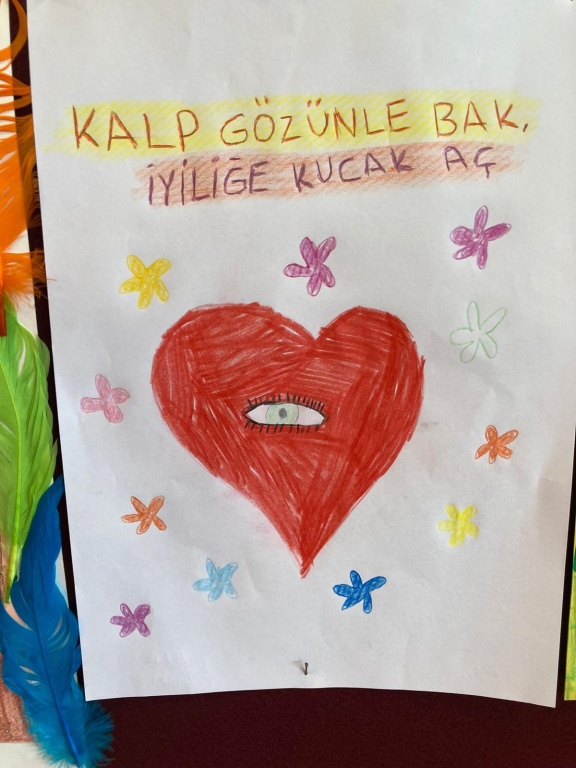 KALP GÖZÜNLE BAK,
İYİLİĞE KUCAK AÇ